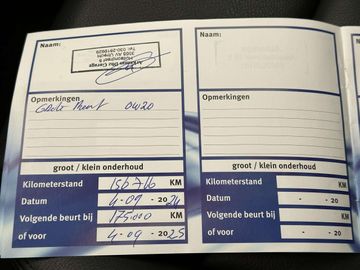 Naam:
Tel: 030-2819929
Opmerkingen
Grote Beurt 0W20
groot / klein onderhoud
Kilometerstand 156716 KM
Datum 4-09-2024
Volgende beurt bij 175.000 KM
of voor 4-09-2025
Naam:
Opmerkingen
groot / klein onderhoud
Kilometerstand KM
Datum - - 20
Volgende beurt bij KM
of voor - - 20